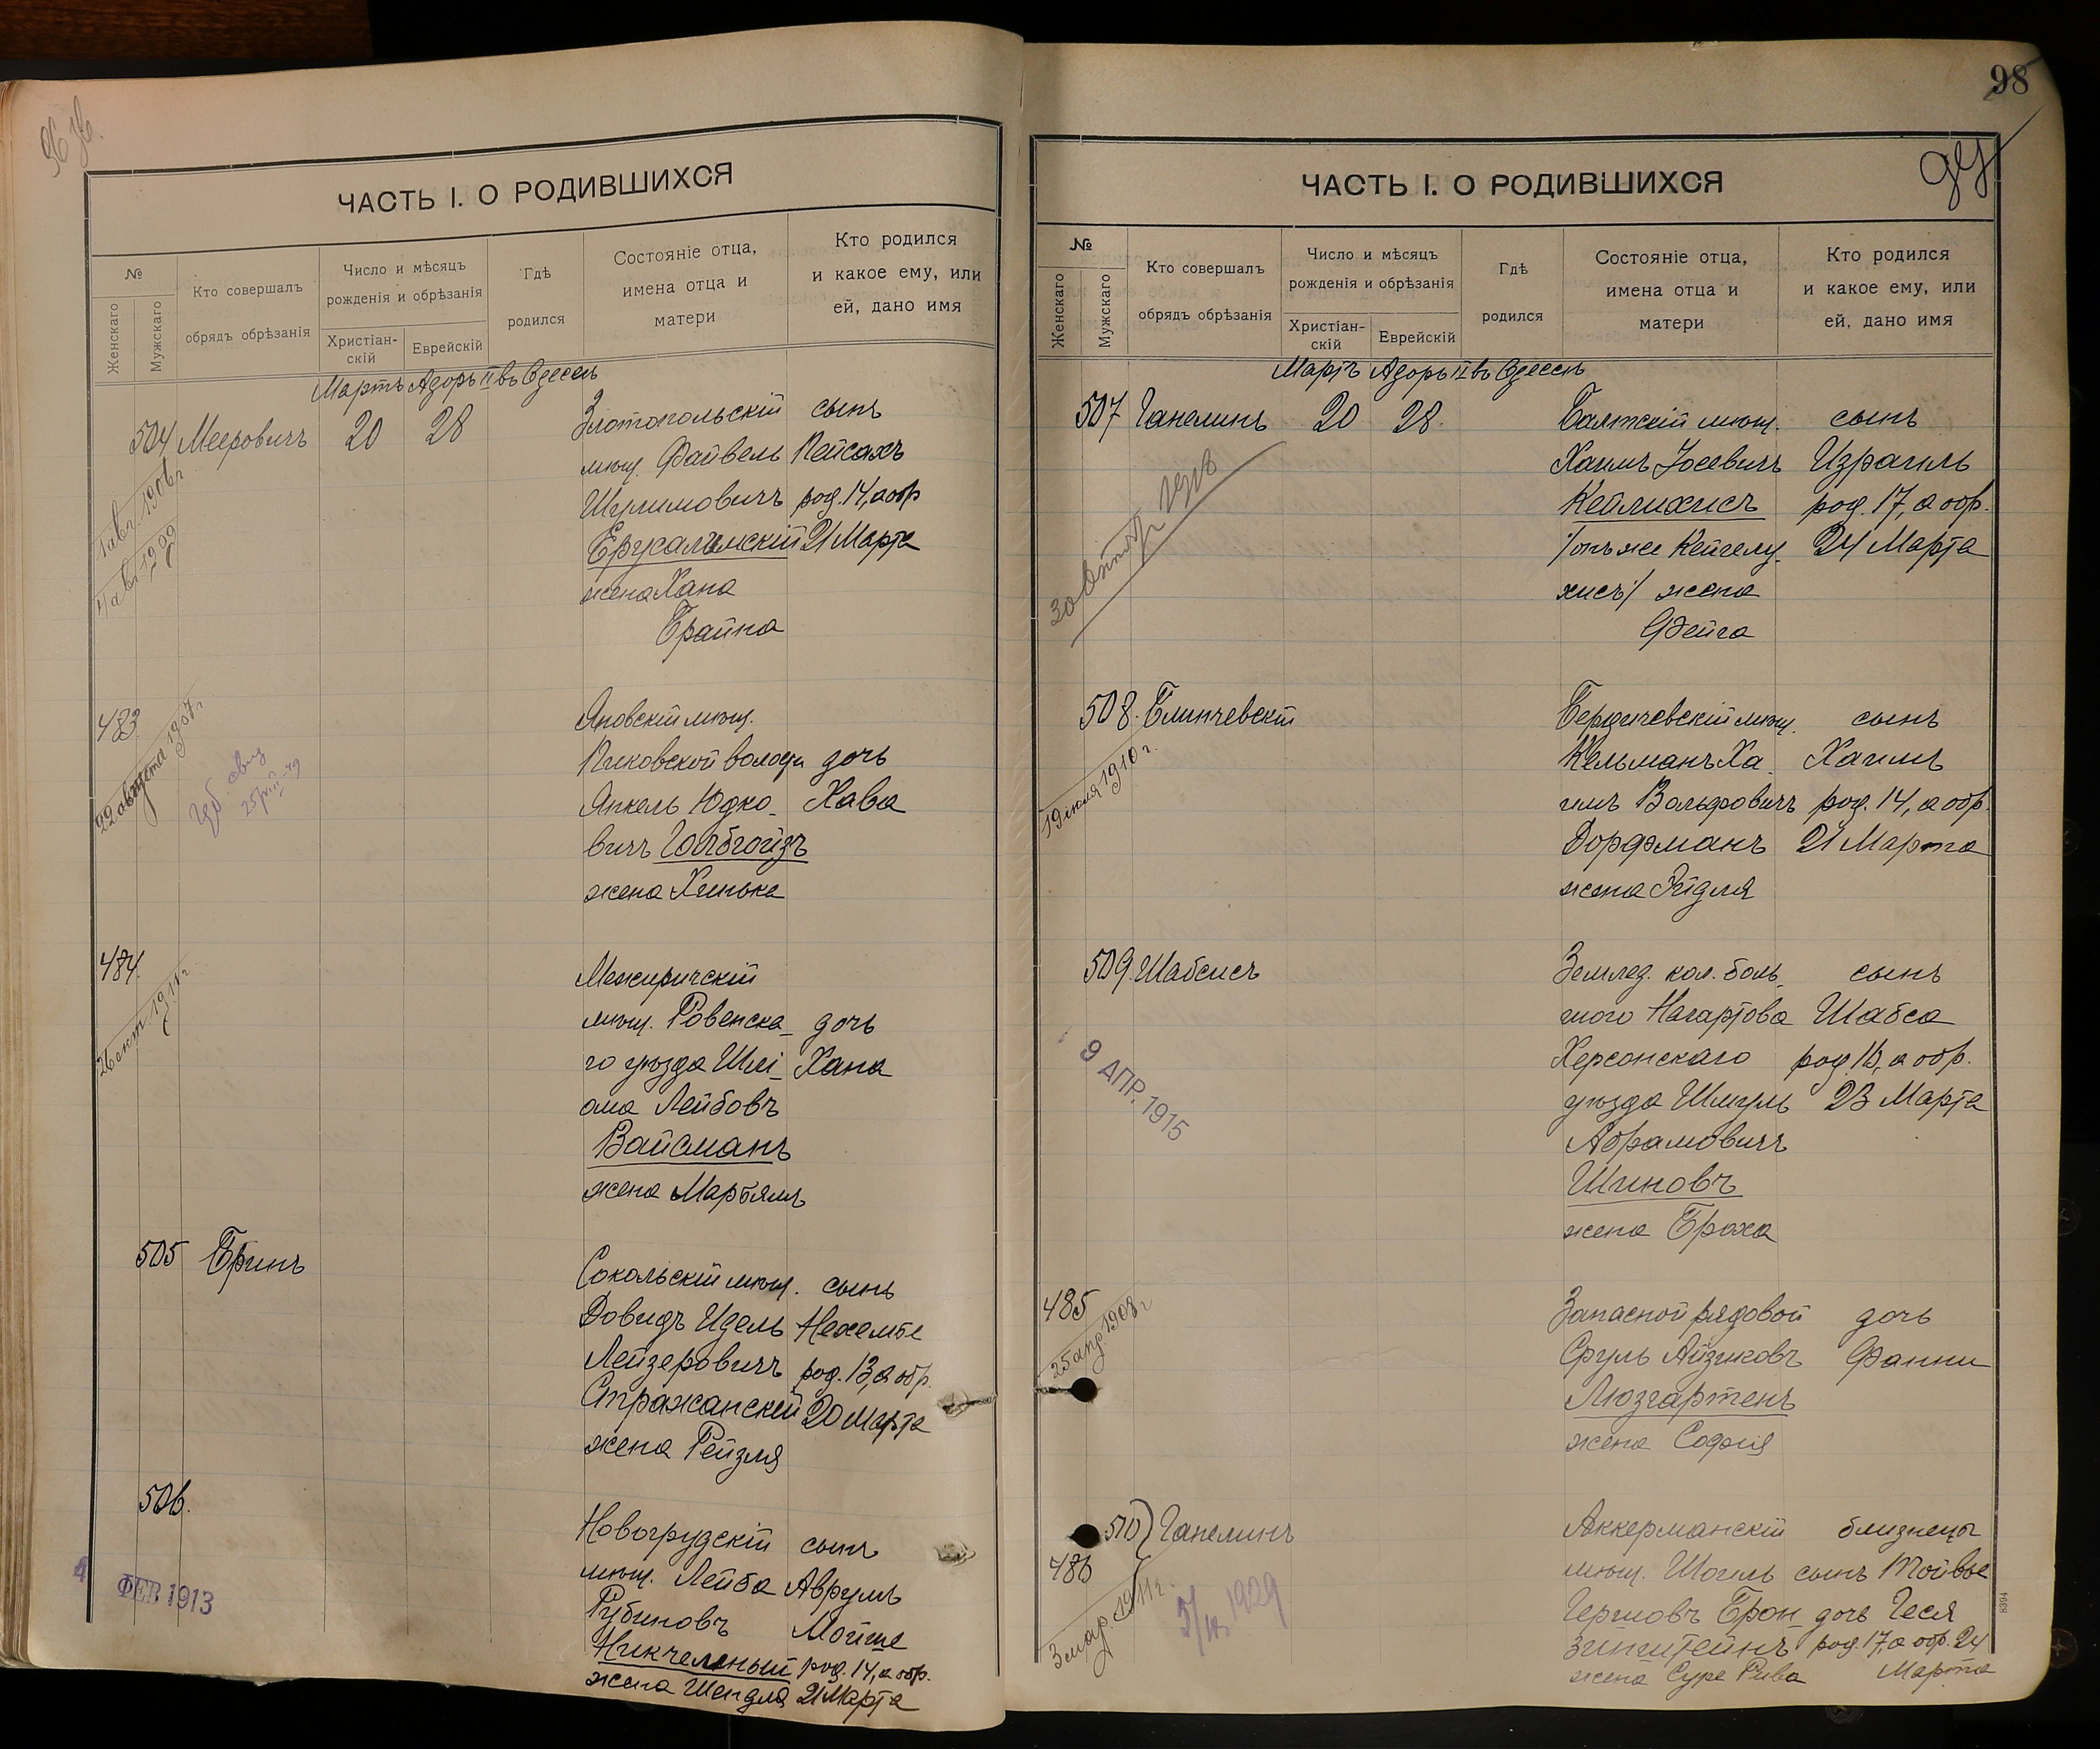 ЧАСТЬ I. О РОДИВШИХСЯ
№
Женскаго
Мужскаго
Кто совершалъ
обрядъ обрѣзанія
Число и мѣсяцъ
рожденія и обрѣзанія
Христіан-
скій
Еврейскій
Гдѣ
родился
Состояніе отца,
имена отца и
матери
Кто родился
и какое ему, или
ей, дано имя
Мартъ Адоръ II въ Одессѣ
504 Мееровичъ 20 28 Златопольскій сынъ
мѣщ. Файвель Пейсахъ
Шулимовичъ род. 14, а обр
Ерусалимскій 21 Марта
жена Хана
Брайна
1 авг. 1906 г
483 Яновскій мѣщ.
Пиковской волости дочь
Янкель Юдко- Хава
вичъ Гольбгойзъ
жена Хинька
22 августа 1907 г.
484 Межиричскій
мѣщ. Ровенска- дочь
го уѣзда Шлі- Хана
ома Лейбовъ
Вайсманъ
жена Марьямъ
26 сент 1911 г.
505 Бринъ Сокольскій мѣщ. сынъ
Довидъ Идель Нехемье
Лейзеровичъ род. 13, а обр.
Стражанскій 20 Марта
жена Рейзля
506. Новогрудскій сынъ
мѣщ. Лейба Аврумъ
Рубиновъ Мойше
род. 14, а обр.
жена Шендля 21 Марта
4 ФЕВ 1913
98
ЧАСТЬ I. О РОДИВШИХСЯ
№
Женскаго
Мужскаго
Кто совершалъ
обрядъ обрѣзанія
Число и мѣсяцъ
рожденія и обрѣзанія
Христіан-
скій
Еврейскій
Гдѣ
родился
Состояніе отца,
имена отца и
матери
Кто родился
и какое ему, или
ей, дано имя
Мартъ Адоръ II въ Одессѣ
507 Ганелинъ 20 28. Балтскій мѣщ. сынъ
Хаимъ Іосевичъ Израиль
Кейлихисъ род. 17, а обр.
/онъ же Кейгелу- 24 Марта
хисъ/ жена
Фейга
508. Блинчевскій Бердичевскій мѣщ. сынъ
Кельманъ Ха- Хаимъ
имъ Вольфовичъ род. 14, а обр.
Дорфманъ 21 Марта
жена Эйдля
19 іюля 1910 г.
509. Шабсисъ Землед. кол. боль- сынъ
шого Нагартова Шабса
Херсонскаго род. 16, а обр.
уѣзда Шмуль 23 Марта
Абрамовичъ
Шиновъ
жена Броха
9 АПР. 1915
485 Запасной рядовой дочь
Сруль Айзиковъ Фанни
Люзгартенъ
жена Софія
25 апр. 1908 г
510 Ганелинъ Аккерманскій близнецы
486 мѣщ. Шоель сынъ Тойвье
Гершовъ Брон- дочь Геся
зинштейнъ род. 17, а обр. 24
жена Суре Рива Марта
3 мар. 1911 г.
8394